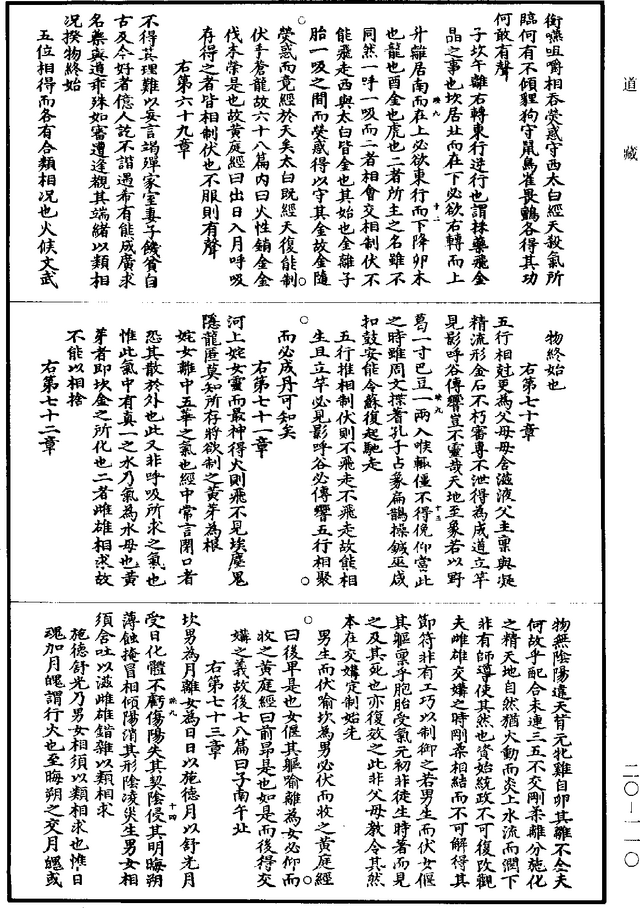 道藏
衡嚥咀嚼相吞熒惑守西太白經天殺氣所
臨何有不傾貍狗守鼠鳥雀畏鸇各得其功
何敢有聲
子坎午離右轉東行逆行也謂抹藥飛金
晶之事也坎居北而在下必欲右轉而上
升離居南而在上必欲東行而下降卯木
也龍也酉金也虎也二者所主之名雖不
同然一呼一吸而二者相會交相制伏不
能飛走西與太白皆金也其始也金離子
胎一吸之間而熒惑得以守其金故金隨
熒惑而竟經於天矣太白既經天復能制
伏乎蒼龍故六十八篇內曰火性銷金金
伐木榮是也故黃庭經曰出日入月呼吸
存得之者皆相制伏也不服則有聲
右第六十九章
不得其理難以妄言竭殫家室妻子饑貧自
古及今好者億人訖不諧遇希有能成廣求
名藥與道乖殊如審遭逢觀其端緒以類相
況揆物終始
五位相得而各有合類相況也火候文武
物終始也
右第七十章
五行相尅更為父母母含滋液父主稟與凝
精流形金石不朽審專不泄得為成道立竿
見影呼谷傳響豈不靈哉天地至象若以野
葛一寸巴豆一兩入喉輒僵不得俛仰當此
之時雖周文揲蓍孔子占象扁鵲操鍼巫咸
扣鼓安能令蘇復起馳走
五行推相制伏則不飛走不飛走故能相
生且立竿必見影呼谷必傳響五行相聚
而必成丹可知矣
右第七十一章
河上姹女靈而最神得火則飛不見埃塵鬼
隱龍匿莫知所存將欲制之黃芽為根
姹女離中五華之氣也經中常言閉口者
恐其散於外也此又非呼吸所求之氣也
惟此氣中有真一之水乃氣為水母也黃
芽者即坎金之所化也二者雌雄相求故
不能以相捨
右第七十二章
物無陰陽違天背元牝雞自卵其雛不全夫
何故乎配合未連三五不交剛柔離分施化
之精天地自然猶火動而炎上水流而潤下
非有師導使其然也資始統政不可復改觀
夫雌雄交媾之時剛柔相結而不可解得其
節符非有工巧以制御之若男生而伏女偃
其軀稟乎胞胎受氣元初非徒生時著而見
之及其死也亦復效之此非父母教令其然
本在交媾定制始先
男生而伏喻坎為男必伏而收之黃庭經
曰後畢是也女偃其軀喻離為女必仰而
收之黃庭經曰前昴是也如是而後得交
媾之義故後七八篇曰子南午北
右第七十三章
坎男為月離女為日日以施德月以舒光月
受日化體不虧傷陽失其契陰侵其明晦朔
薄蝕掩冒相傾陽消其形陰凌災生男女相
須含吐以滋雌雄錯雜以類相求
施德舒光乃男女相須以類相求也惟日
魂加月魄謂行火也至晦朔之交月魄或
二〇–一一〇